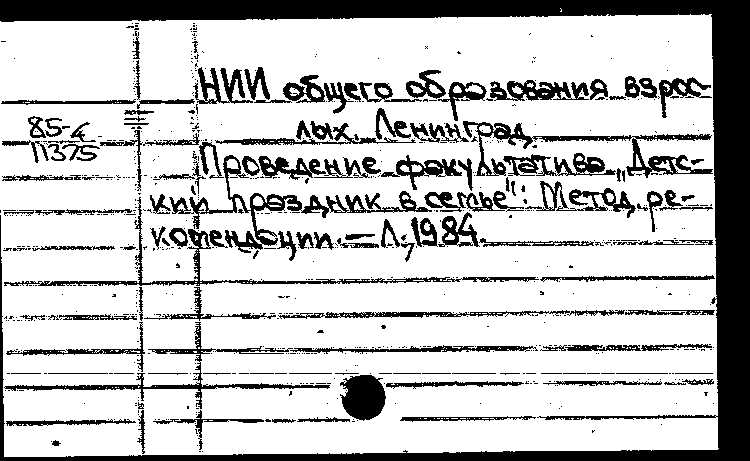 НИИ общего образования взрос-
лых. Ленинград.
85-4
11375
Проведение факультатива „Детс-
кий праздник в семье": Метод. ре-
комендации. — Л., 1984.